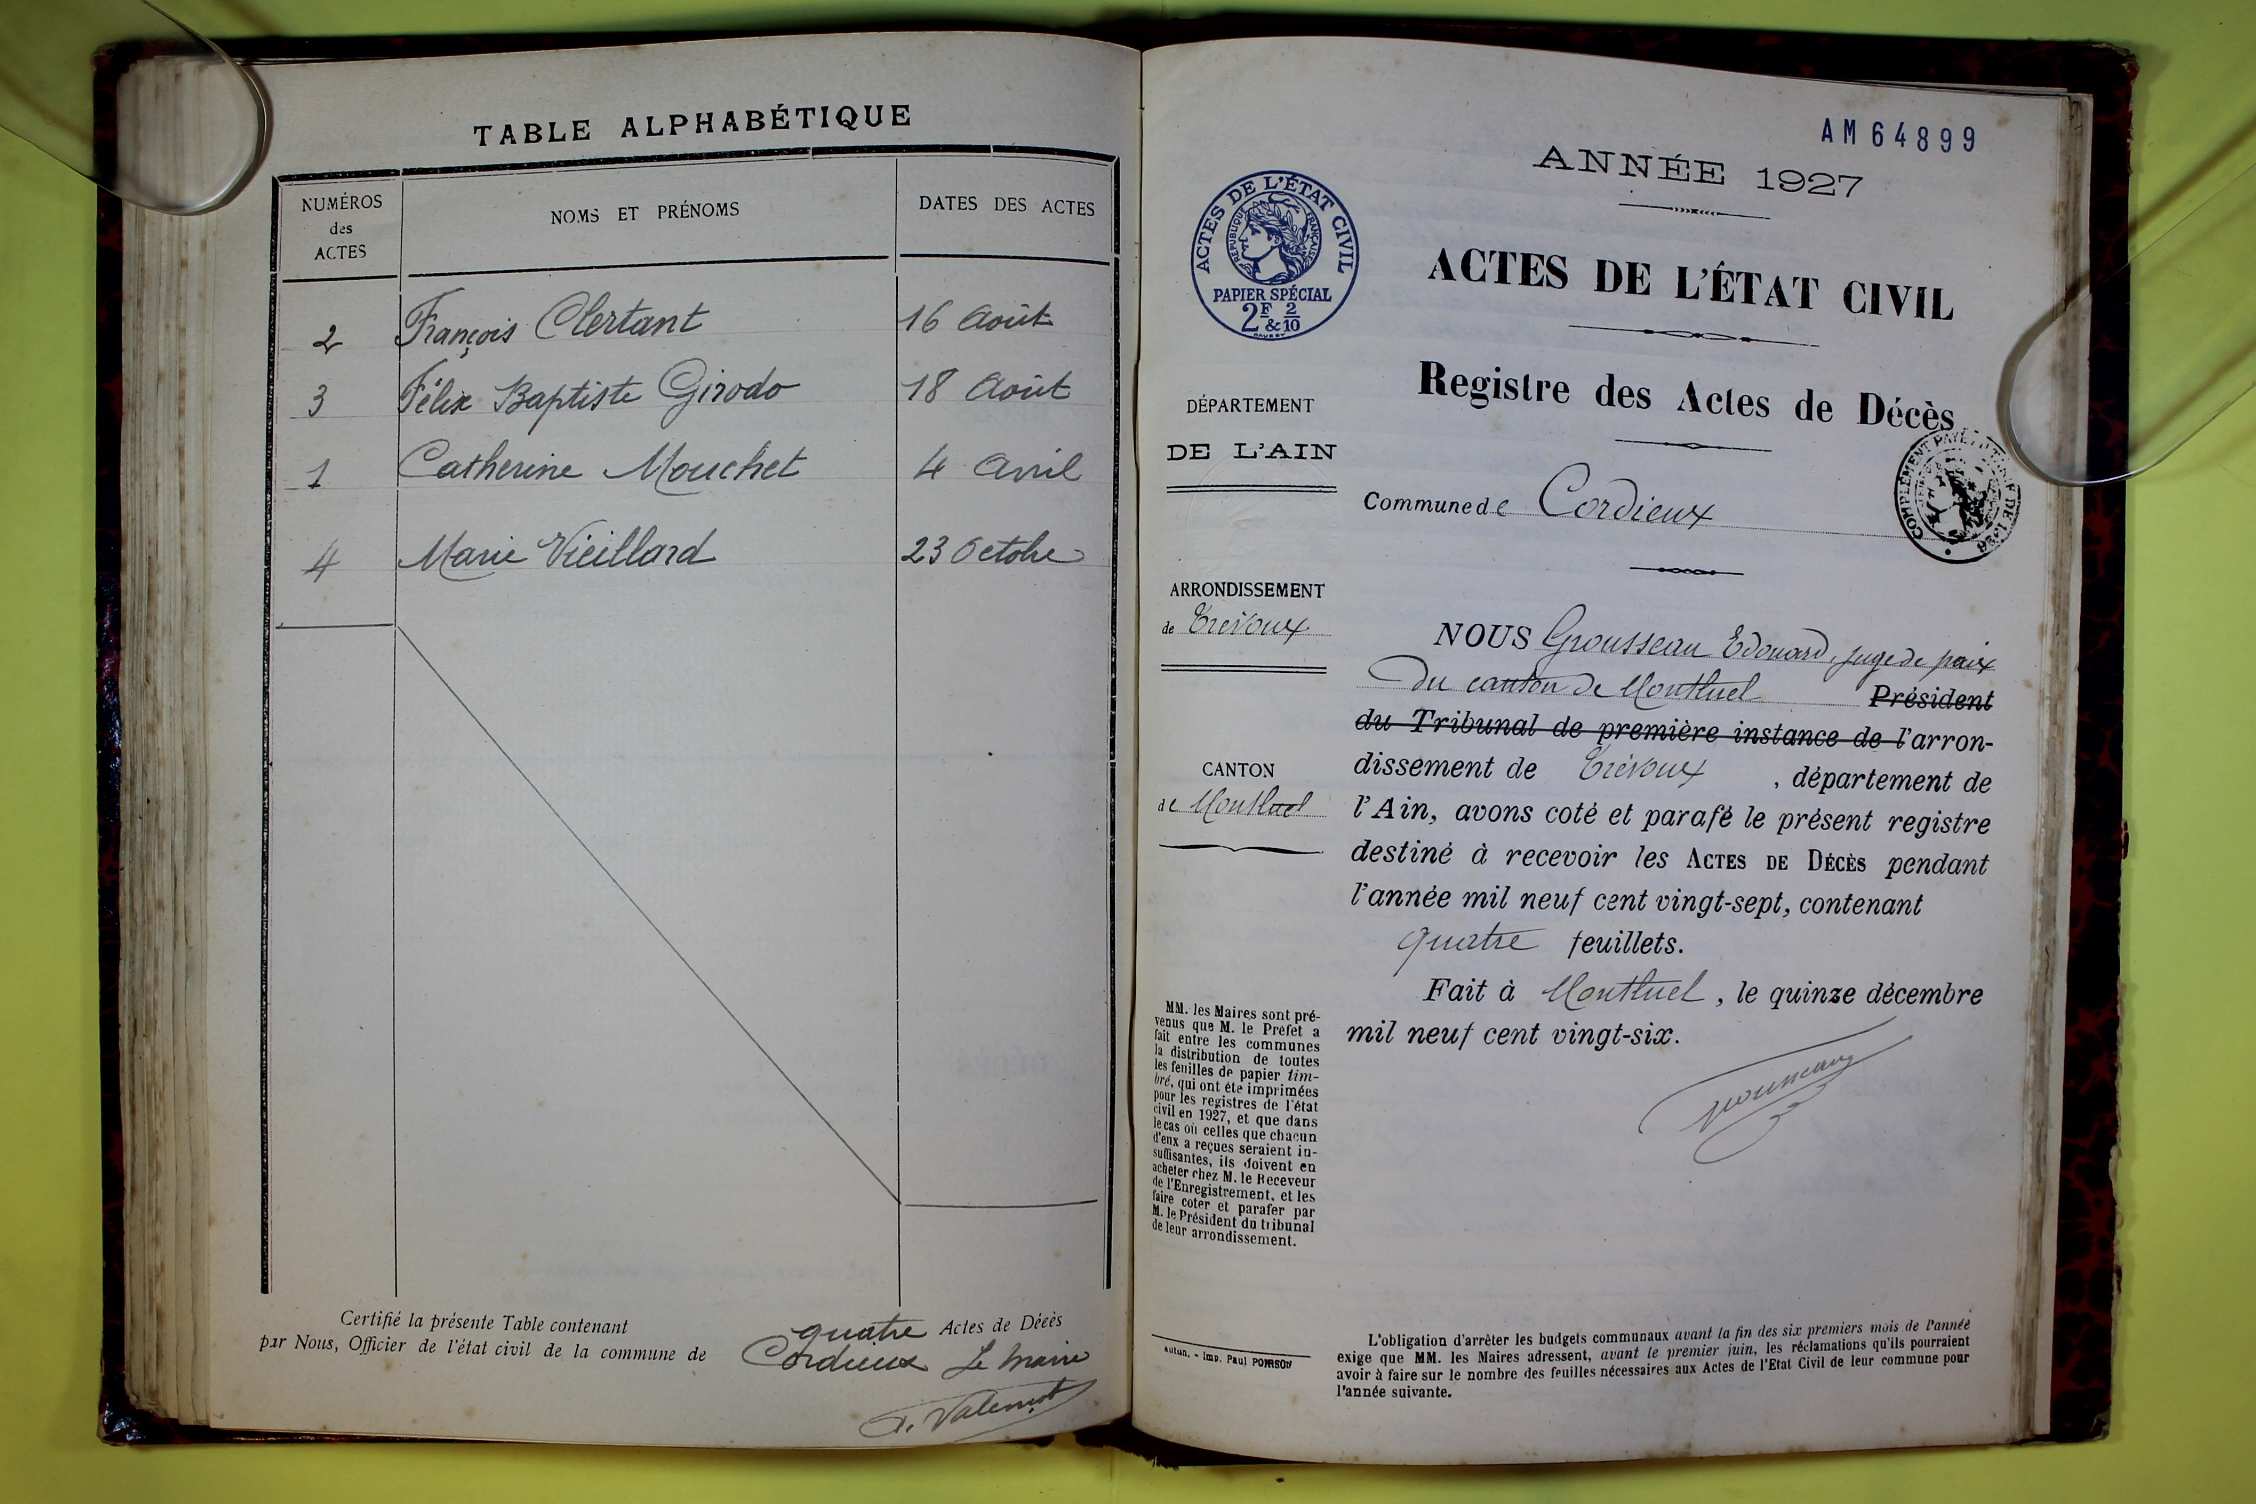 TABLE ALPHABÉTIQUE
NUMÉROS
des
ACTES
NOMS ET PRÉNOMS
DATES DES ACTES
2 François Clertant 16 Août
3 Félix Baptiste Girodo 18 Août
1 Catherine Mouchet 4 Avril
4 Marie Vieillard 23 Octobre
Certifié la présente Table contenant quatre Actes de Décès
par Nous, Officier de l'état civil de la commune de Cordieux Le Maire
AM64899
ANNÉE 1927
ACTES DE L'ÉTAT CIVIL
RÉPUBLIQUE FRANÇAISE
PAPIER SPÉCIAL
2F & 2/10
ACTES DE L'ÉTAT CIVIL
Registre des Actes de Décès
COMPLÉMENT PAYÉ
DÉPARTEMENT
DE L'AIN
Commune de Cordieux
ARRONDISSEMENT
de Trévoux
CANTON
de Montluel
NOUS Grousseau Edouard, juge de paix
du canton de Montluel Président
du Tribunal de première instance de l'arron-
dissement de Trévoux, département de
l'Ain, avons coté et parafé le présent registre
destiné à recevoir les ACTES DE DÉCÈS pendant
l'année mil neuf cent vingt-sept, contenant
quatre feuillets.
Fait à Montluel, le quinze décembre
mil neuf cent vingt-six.
MM. les Maires sont pré-
venus que M. le Préfet a
fait entre les communes
la distribution de toutes
les feuilles de papier tim-
bré, qui ont été imprimées
pour les registres de l'état
civil en 1927, et que dans
le cas où celles que chacun
d'eux a reçues seraient in-
suffisantes, ils doivent en
acheter chez M. le Receveur
de l'Enregistrement, et les
faire coter et parafer par
M. le Président du tribunal
de leur arrondissement.
Autun. - Imp. Paul POIRSON
L'obligation d'arrêter les budgets communaux avant la fin des six premiers mois de l'année
exige que MM. les Maires adressent, avant le premier juin, les réclamations qu'ils pourraient
avoir à faire sur le nombre des feuilles nécessaires aux Actes de l'Etat Civil de leur commune pour
l'année suivante.